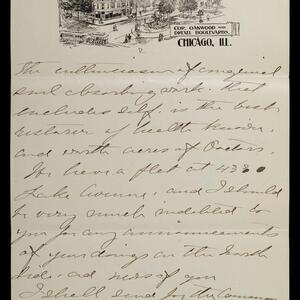 COR. OAKWOOD AND
DREXEL BOULEVARDS,
CHICAGO, ILL.
2
The enthusiasm of congenial
and absorbing work, that
excludes self, is the best
restorer of health known,
and worth acres of Doctors.
We have a flat at 4330
Lake Avenue, and I should
be very much indebted to
you for any announcements
of your doings on the North
Side, and news of you
I shall send for the